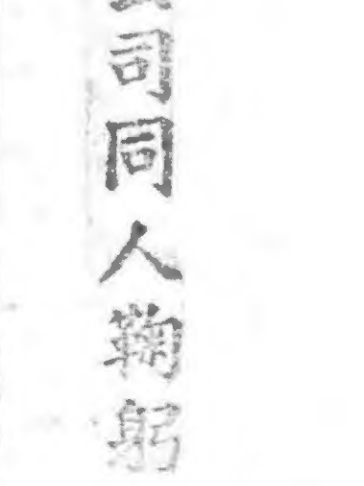 司同人鞠躬